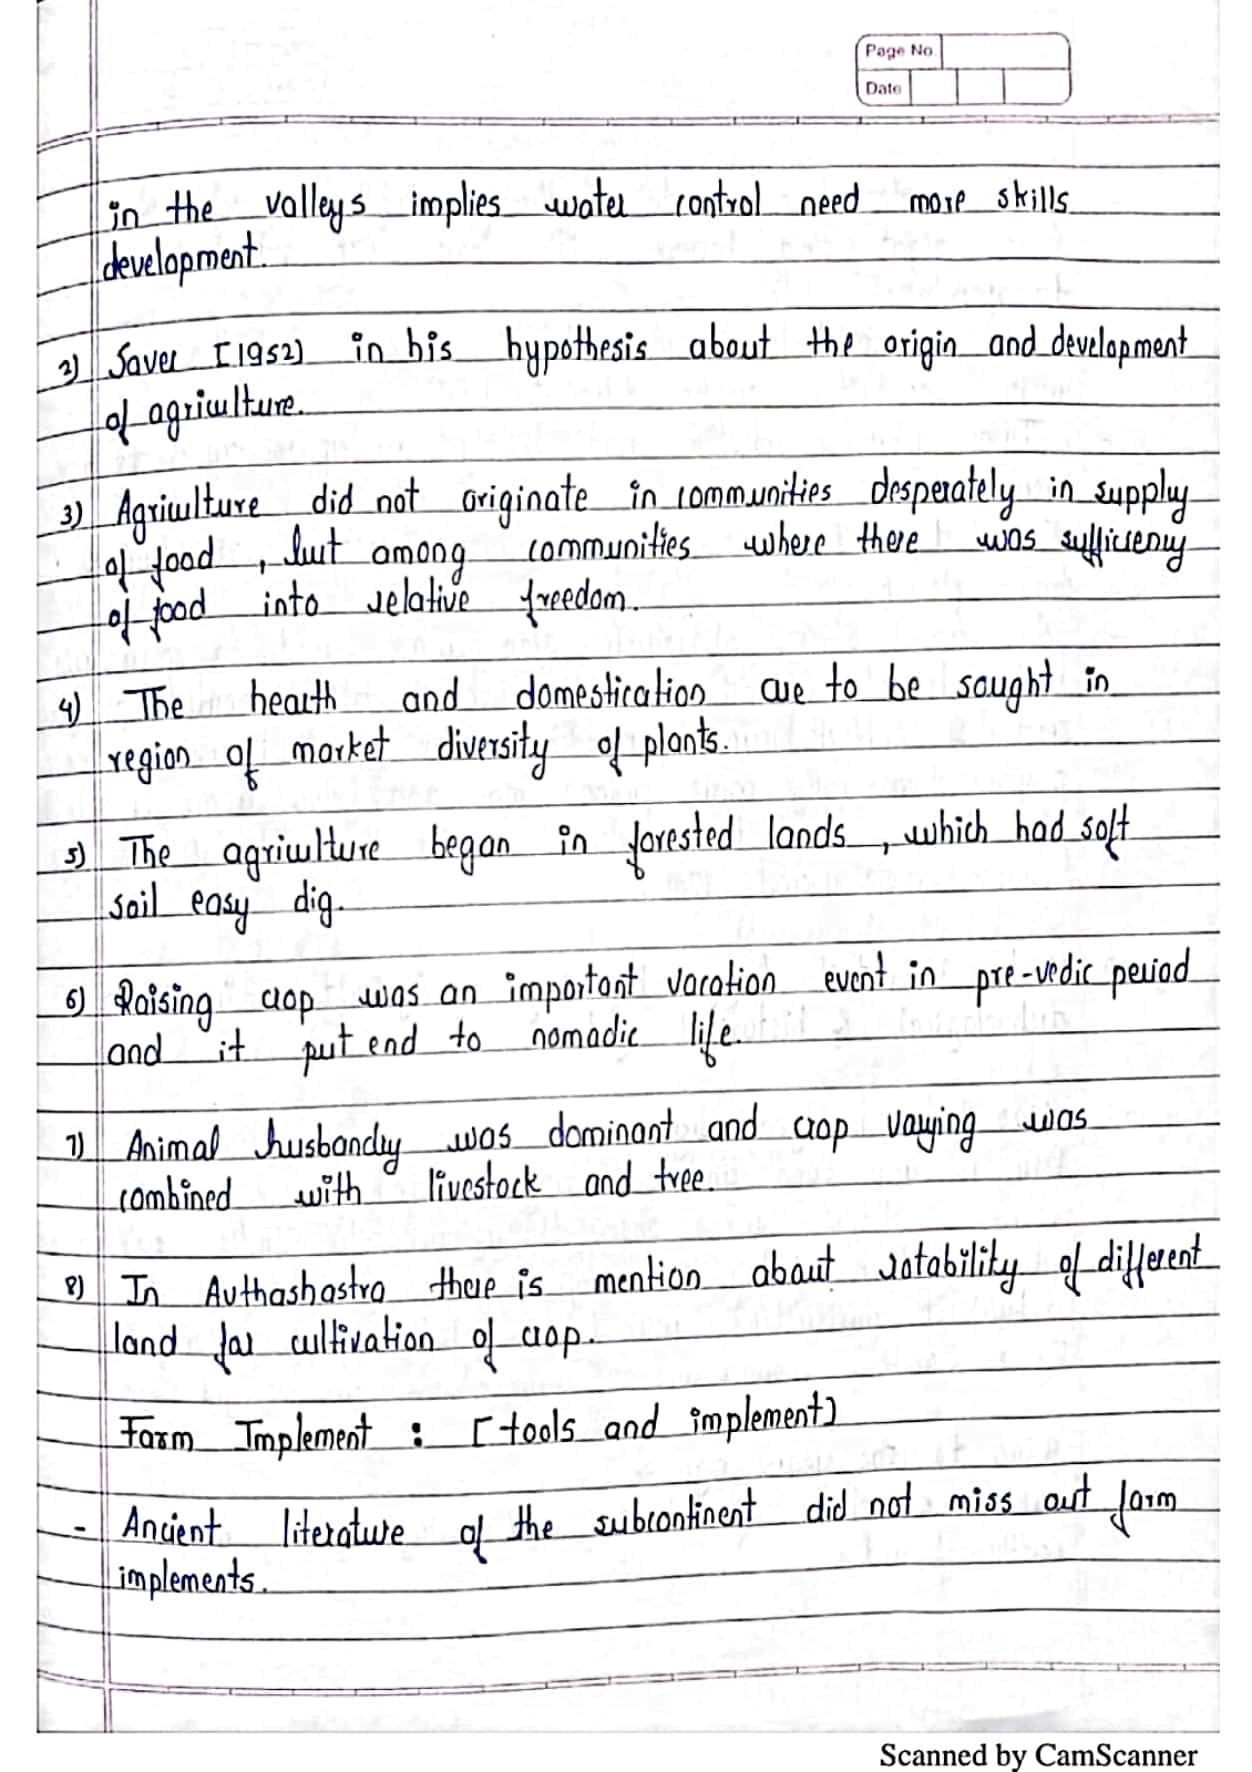 Page No
Date
in the valleys implies water control need more skills
development.
2) Saver [1952] in his hypothesis about the origin and development
of agriculture.
3) Agriculture did not originate in communities desperately in supply
of food, but among communities where there was sufficieny
of food into relative freedom.
4) The hearth and domestication are to be sought in
region of market diversity of plants.
5) The agriculture began in forested lands, which had soft
soil easy dig.
6) Raising crop was an important vacation event in pre-vedic period
and it put end to nomadic life.
7) Animal husbandry was dominant and crop varying was
combined with livestock and tree.
8) In Arthashastra there is mention about rotability of different
land for cultivation of crop.
Farm Implement : [tools and implement]
- Ancient literature of the subcontinent did not miss out farm
implements.
Scanned by CamScanner